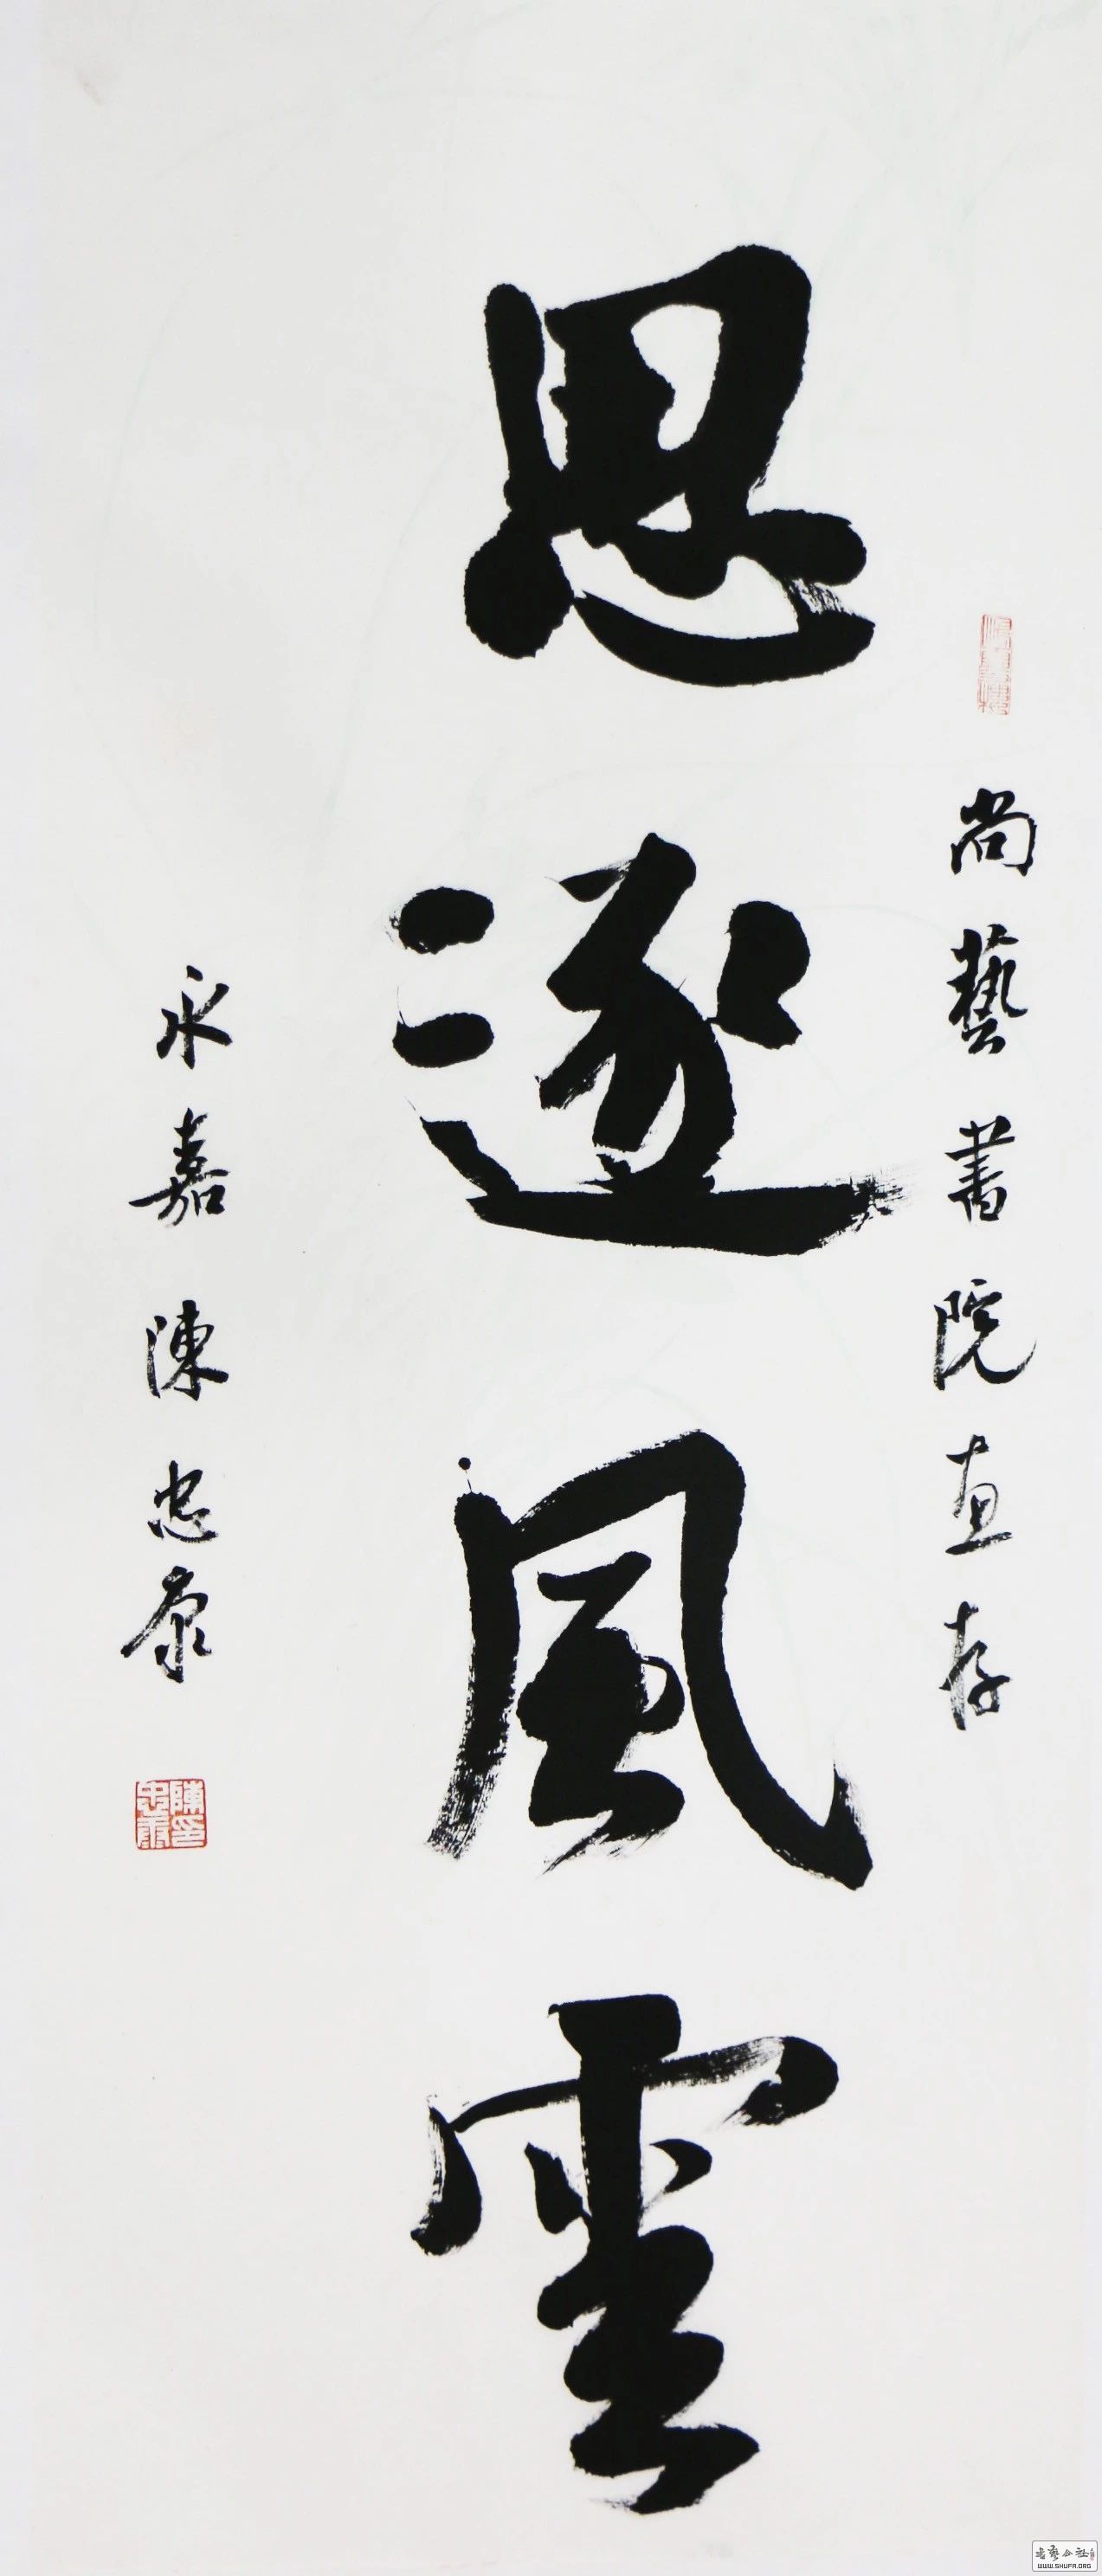 尚藝書院惠存
思逐風雲
永嘉陳忠康
陳忠康印
書藝公社
WWW.SHUFA.ORG